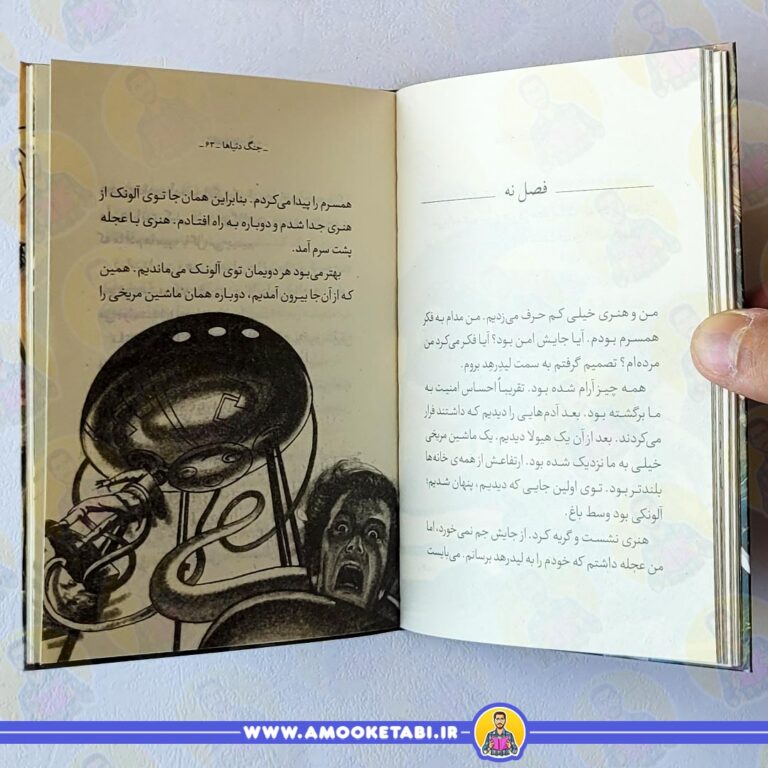 فصل نه
من و هنری خیلی کم حرف می‌زدیم. من مدام به فکر
همسرم بودم. آیا جایش امن بود؟ آیا فکر می‌کرد من
مرده‌ام؟ تصمیم گرفتم به سمت لیدرهد بروم.
همه چیز آرام شده بود. تقریباً احساس امنیت به
ما برگشته بود. بعد آدم‌هایی را دیدیم که داشتند فرار
می‌کردند. بعد از آن یک هیولا دیدیم. یک ماشین مریخی
خیلی به ما نزدیک شده بود. ارتفاعش از همه‌ی خانه‌ها
بلندتر بود. توی اولین جایی که دیدیم، پنهان شدیم؛
آلونکی بود وسط باغ.
هنری نشست و گریه کرد. از جایش جم نمی‌خورد، اما
من عجله داشتم که خودم را به لیدرهد برسانم. می‌بایست
ـ جنگ دنیاها ـ ۶۳ ـ
همسرم را پیدا می‌کردم. بنابراین همان‌جا توی آلونک از
هنری جدا شدم و دوباره به راه افتادم. هنری با عجله
پشت سرم آمد.
بهتر می‌بود هر دویمان توی آلونک می‌ماندیم. همین
که از آن‌جا بیرون آمدیم، دوباره همان ماشین مریخی را
WWW.AMOOKETABI.IR